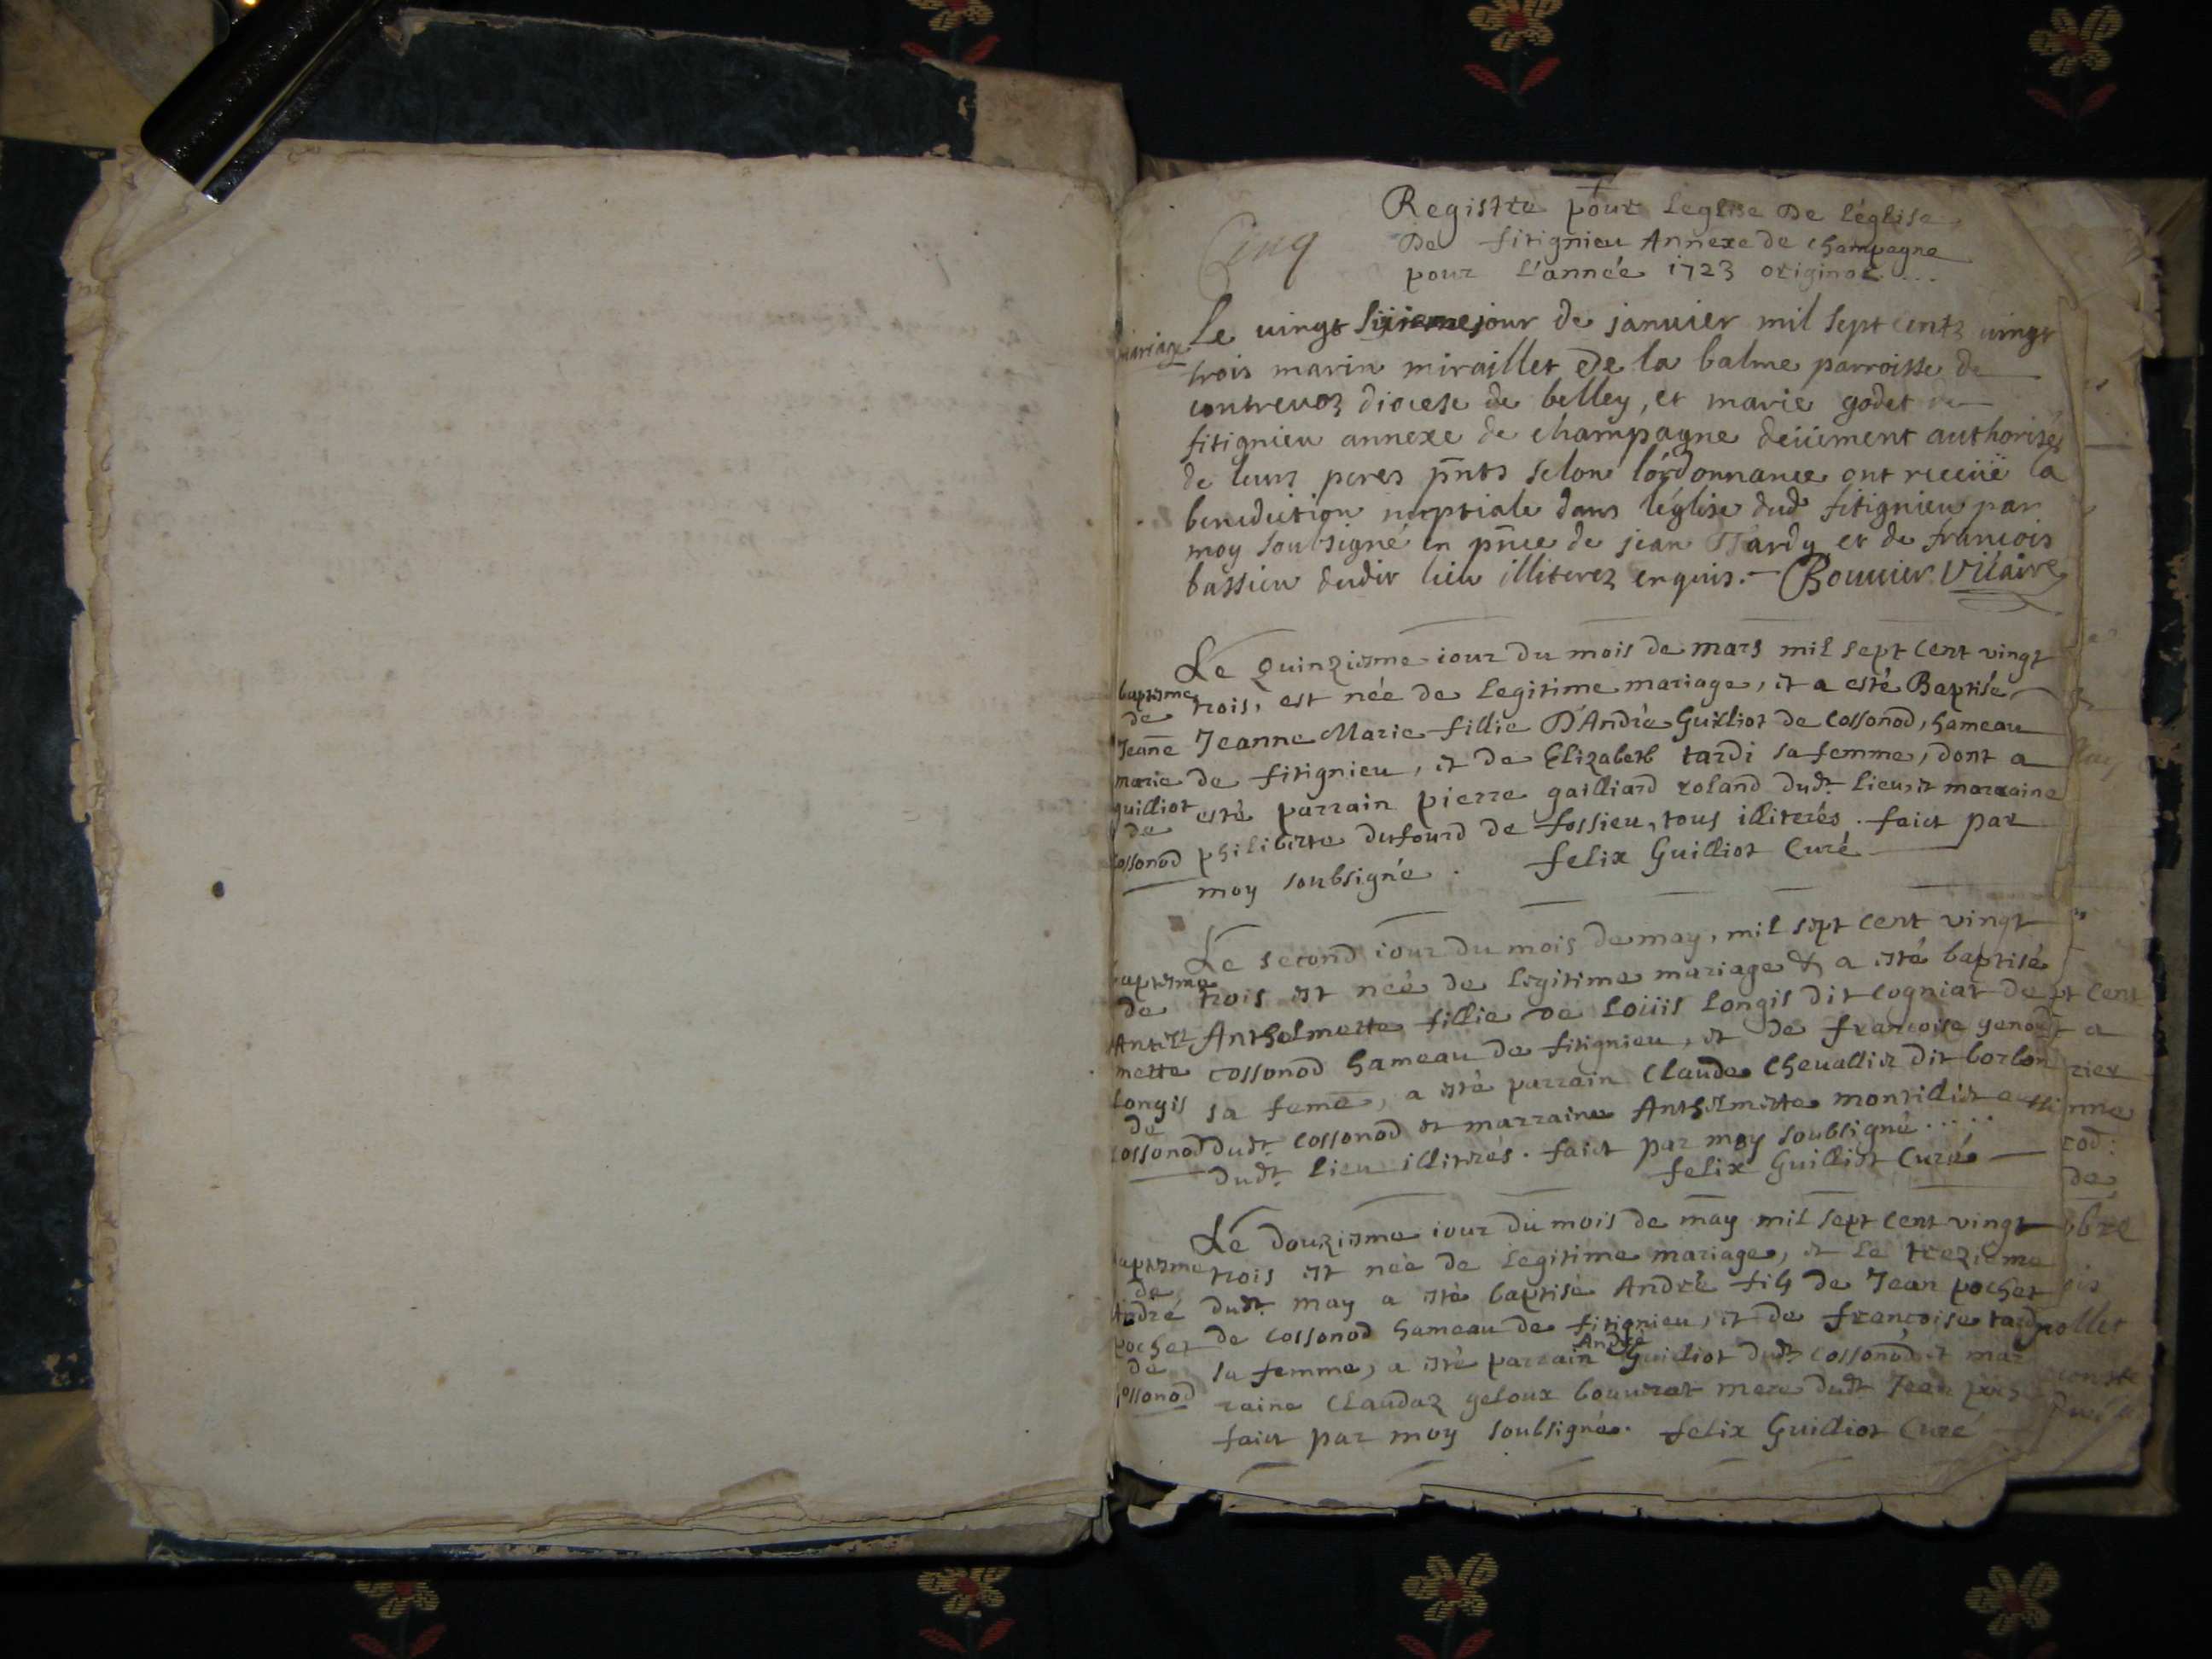 Registre pour Leglise De léglise
De fitignieu Annexe de champagne
pour L'année 1723 original....
Cinq
mariage
Le vingt siziesme jour de januier mil sept cents vingt
trois marin miraillet De la balme parroisse de
contreuoz diocese de belley, et marie godet de
fitignieu annexe de champagne deüement authorisés
de leurs peres pnts selon lordonnance ont receüe la
benediction nuptiale dans léglise dud fitignieu par
moy soubsigné en pnce de jean Tardy et de francois
bassieu dudit lieu illiterez enquis. Bouuier Vicaire
baptesme
de
Jeane
marie
guilliot
de
Cossonod
Le Quinziesme iour du mois de mars mil sept Cent vingt
trois, est née de Legitime mariage, et a esté Baptisée
Jeanne Marie fillie D'André Guilliot de Cossonod, hameau
de fitignieu, et de Elizabeth tardi sa femme, dont a
esté parrain pierre gailliard roland dudt. Lieu, et marraine
philiberte dufourd de fossieu, tous illiterés. faict par
moy soubsigné. felix Guilliot Curé
baptesme
de
Anthel
mette
Longis
de
Cossonod
Le second iour du mois de may, mil sept Cent vingt
trois est née de Legitime mariage & a esté baptisé
Anthelmette fillie de Loüis Longis dit Cogniat de
Cossonod hameau de fitignieu, et de francoise genod
sa feme, a esté parrain Claude Cheuallier dit borbon
dudt. Cossonod et marraine Anthelmette montillet aussi
dudt. Lieu illiterés. faict par moy soubsigné.....
felix Guilliot Curé
baptesme
de
André
pochet
de
Cossonod
Le douziesme iour du mois de may mil sept Cent vingt
trois est née de Legitime mariage, et Le trezieme
dudt. may a esté baptisé André fils de Jean pochet
de Cossonod hameau de fitignieu, et de francoise tardi
sa femme, a esté parrain André Guilliot dudt Cossonod et mar
raine Claudaz geloux bouurat mere dudt Jean
faict par moy soubsigné. felix Guilliot Curé